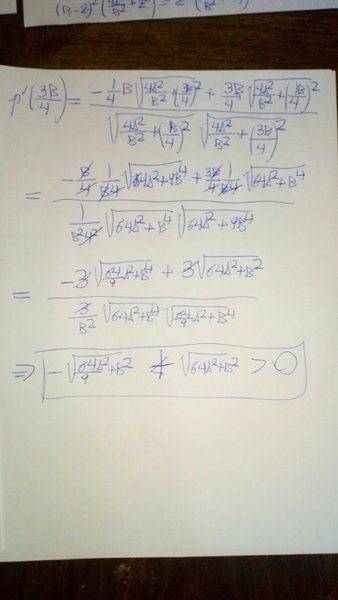 p'(3B/4) = (-1/4 B √(4A²/B² + (3B/4)²) + 3B/4 √(4A²/B² + (1B/4)²)) / (√(4A²/B² + (B/4)²) √(4A²/B² + (3B/4)²))
= (-B/4 1/B4 √(64A²+9B⁴) + 3B/4 1/B4 √(64A²+B⁴)) / (1/B²4² √(64A²+B⁴) √(64A²+9B⁴))
= (-3 √(64/9 A²+B⁴) + 3 √(64A²+B²)) / (3/B² √(64A²+B⁴) √(64/9 A²+B⁴))
⇒ -√(64A²/9 +B²) + √(64A²+B²) > 0